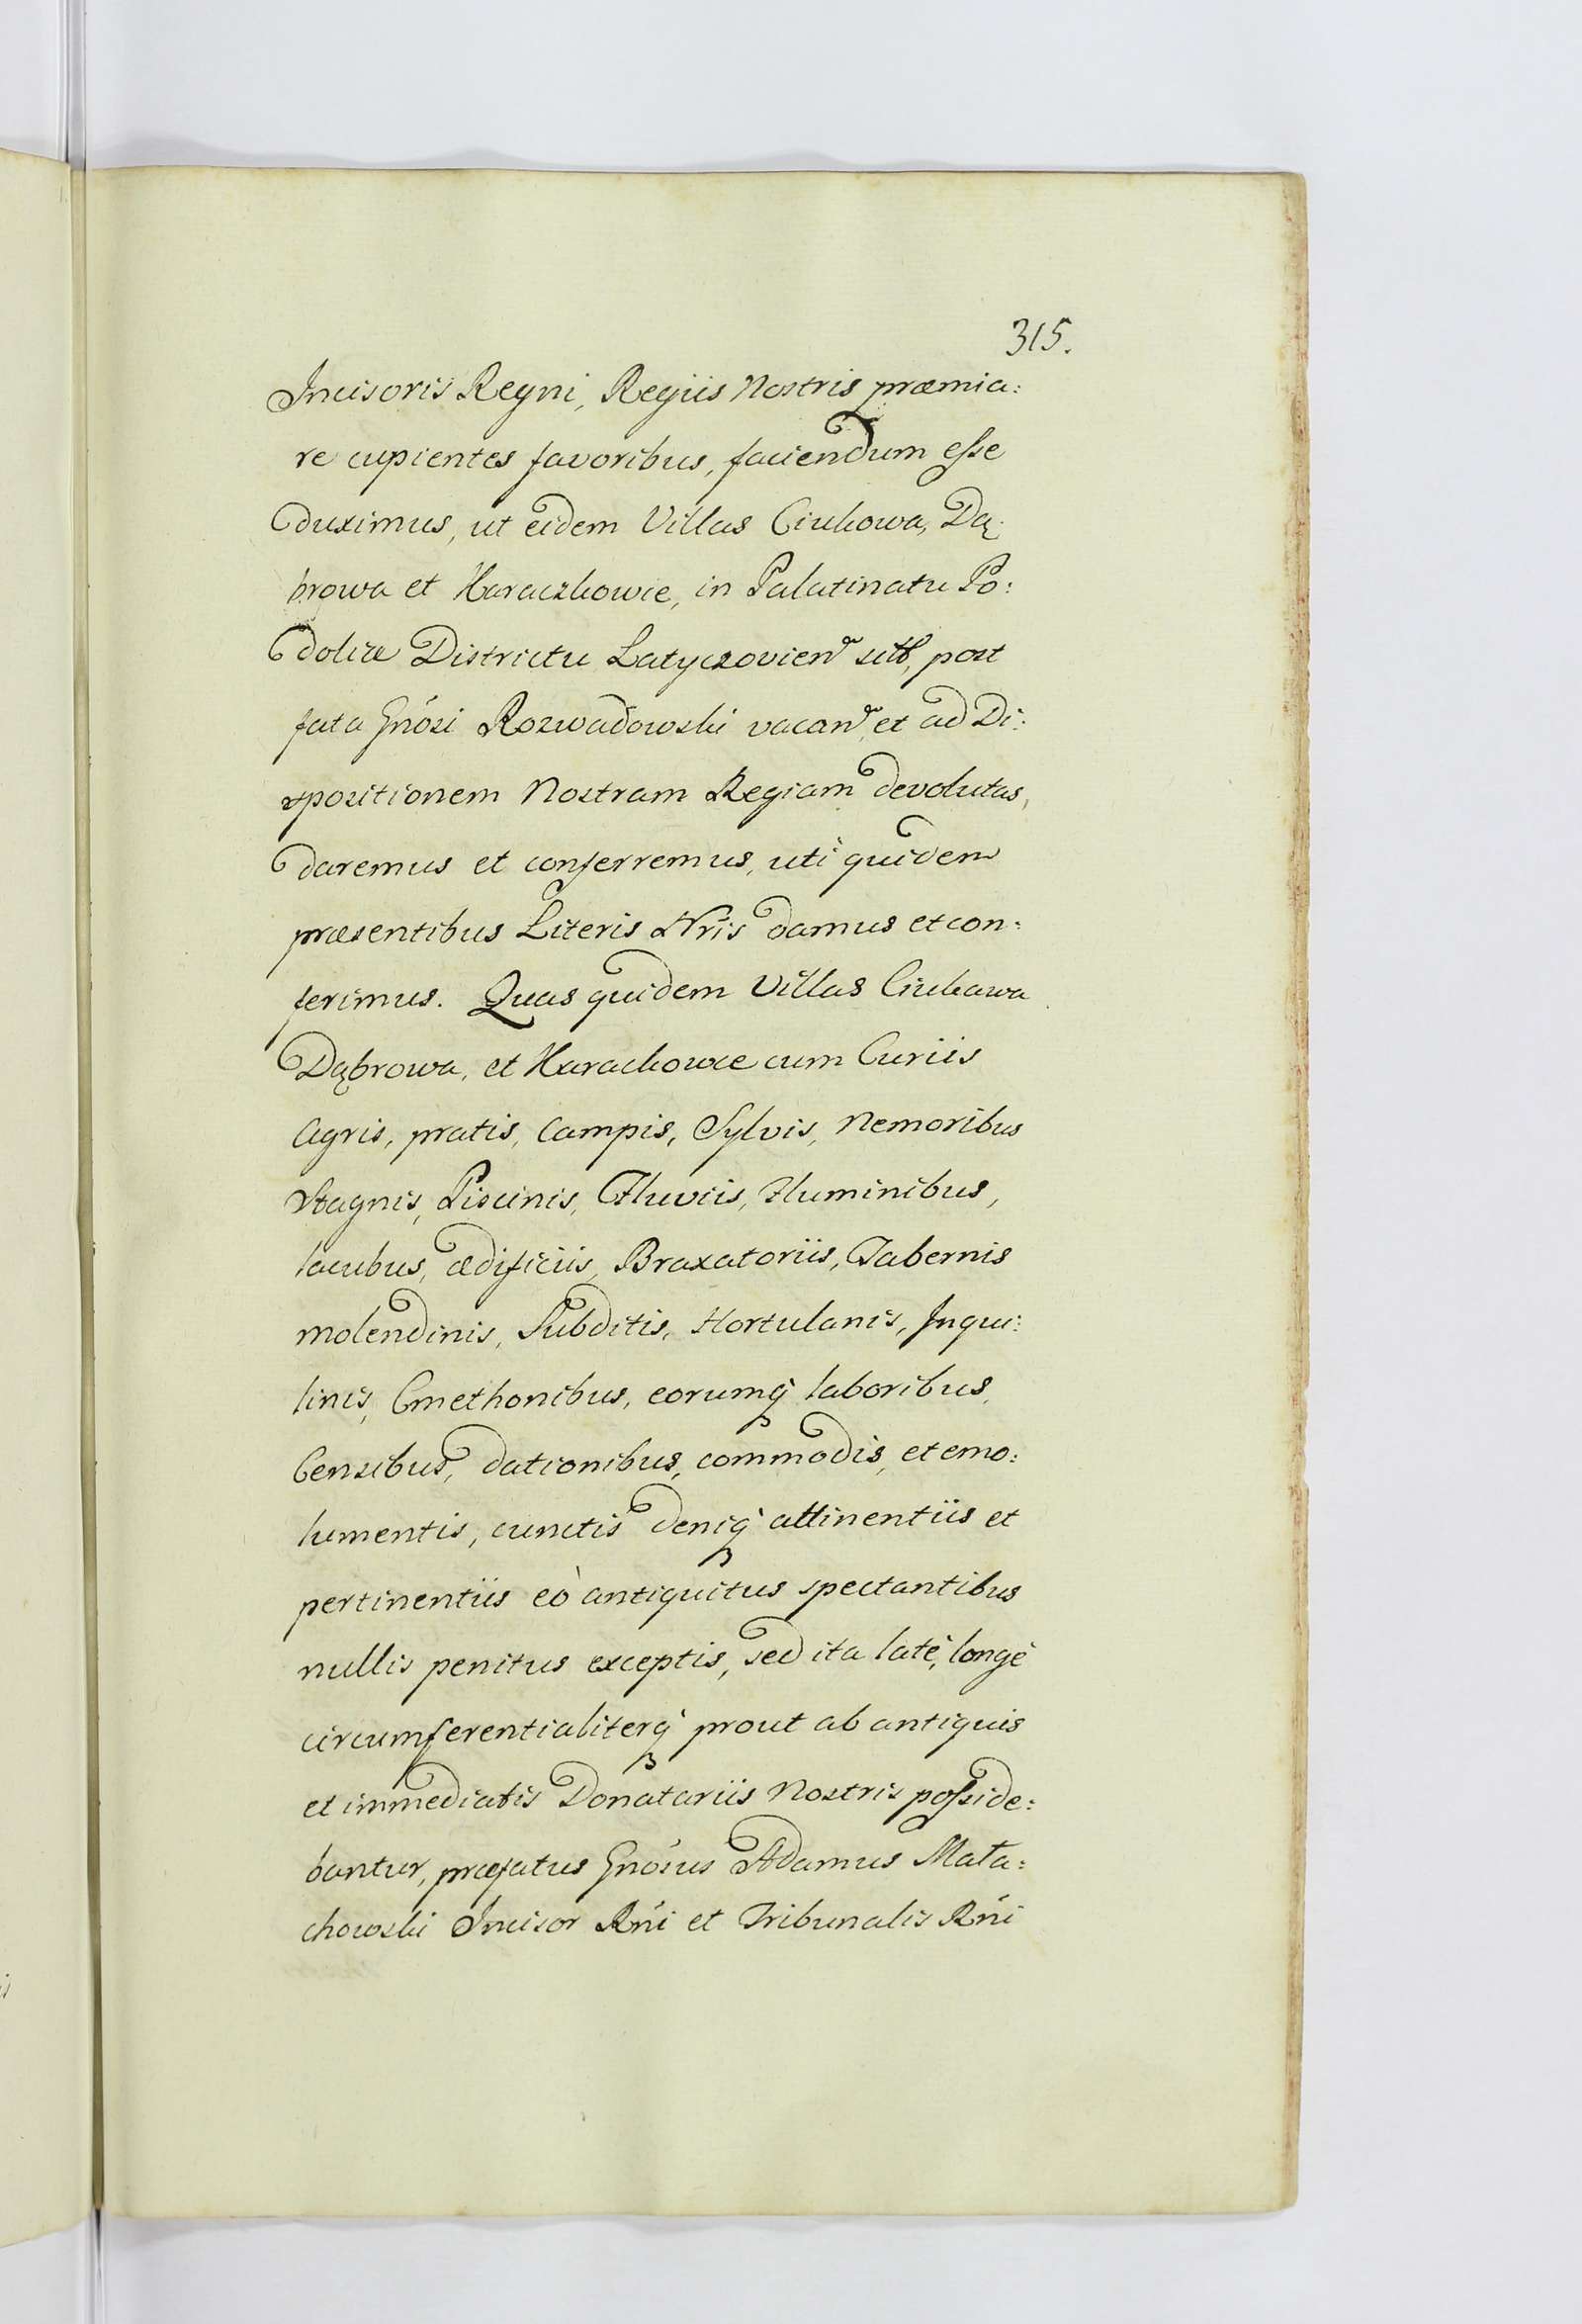 315.
Incisoris Regni, Regiis Nostris præmia:
re cupientes favoribus, faciendum esse
duximus, ut eidem Villas Ciukowa, Dą:
browa et Haraczkowce, in Palatinatu Po:
doliæ Districtu Latyczovien sitt, post
fata Gnósi Rozwadowski vacan et ad Di:
spositionem Nostram Regiam devolutas,
daremus et conferremus, uti quidem
præsentibus Literis Nris damus et con:
ferimus. Quas quidem Villas Ciukawa
Dąbrowa, et Harackowce cum Curiis
Agris, pratis, Campis, Sylvis, Nemoribus
Stagnis, Piscinis, Fluviis, Fluminibus,
lacubus, ædificiis, Braxatoriis, Tabernis
molendinis, Subditis, Hortulanis, Inqui:
linis, Cmethonibus, eorumq laboribus,
Censibus, dationibus, commodis, et emo:
lumentis, cunctis deniq attinentiis et
pertinentiis eò antiquitus spectantibus
nullis penitus exceptis, sed ita latè, longè
circumferentialiterq prout ab antiquis
et immediatis Donatariis Nostris posside:
bantur, præfatus Gnósus Adamus Mała:
chowski Incisor Rńi et Tribunalis Rńi